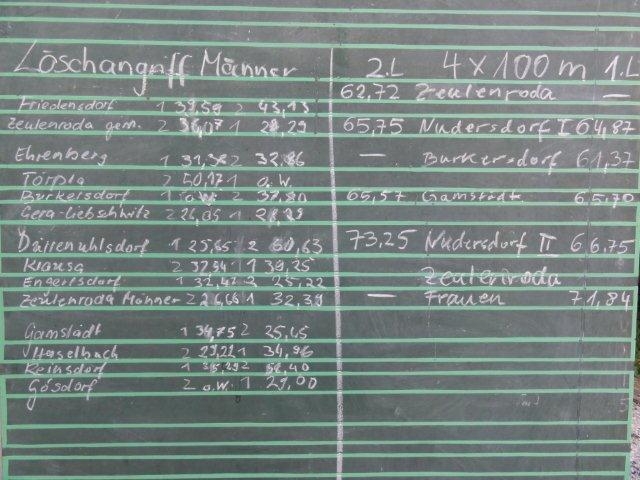 Löschangriff Männer
Friedensdorf 1 39,59 2 43,13
Zeulenroda gem. 2 1
Ehrenberg 1 2
Törpla 2 50,17 1 o.w.
Burkersdorf 1 o.w. 2 37,80
Gera-Liebschwitz 2 26,05 1
Dürrenuhlsdorf 1 25,65 2
Krausa 2 1 39,25
Engertsdorf 1 32,42 2 25,22
Zeulenroda Männer 2 1 32,39
Gamstädt 1 34,75 2
Haselbach 2 1
Reinsdorf 1 2
Gösdorf 2 o.w. 1 29,00
2.L 4 x 100 m 1.L
62,72 Zeulenroda —
65,75 Nudersdorf I 64,87
— Burkersdorf 61,37
65,57 Gamstädt 65,70
73,25 Nudersdorf II 66,75
Zeulenroda
— Frauen 71,84